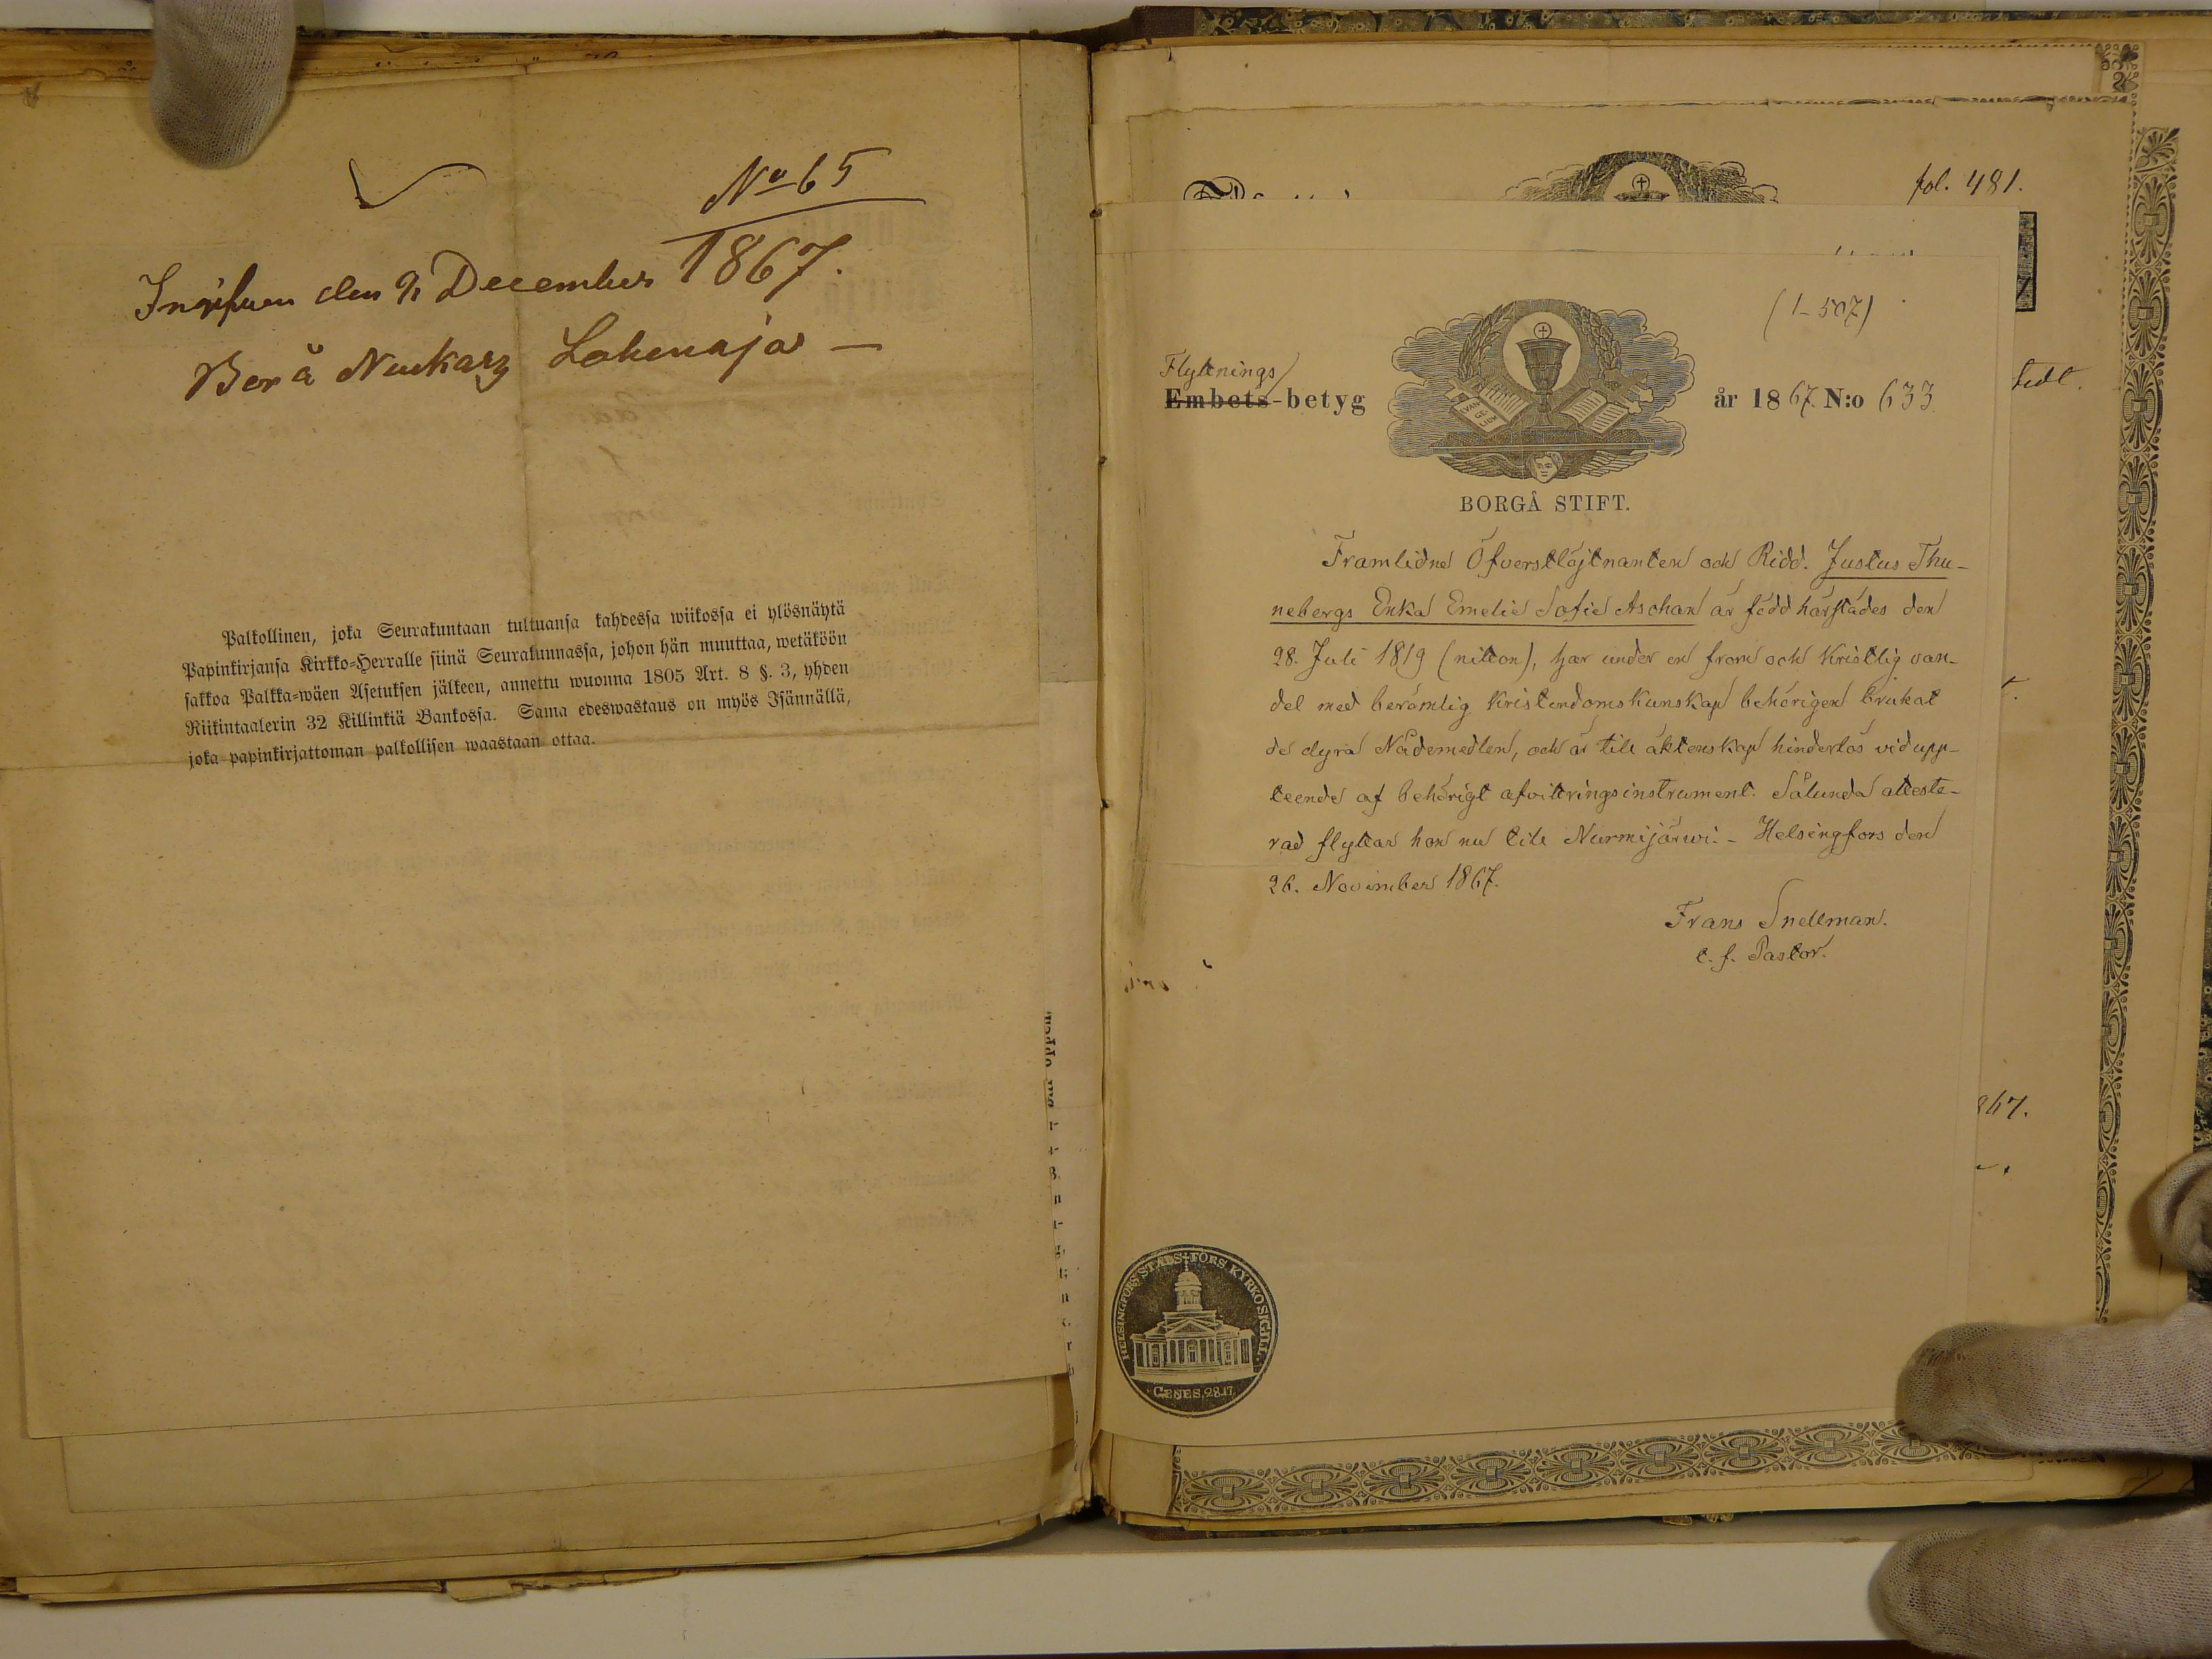 No 65
1867.
den 9 December
Bor å
Palkollinen, joka Seurakuntaan tultuansa kahdessa wiikossa ei ylösnäytä
Papinkirjansa Kirkko-Herralle siinä Seurakunnassa, johon hän muuttaa, wetäköön
sakkoa Palkka-wäen Asetuksen jälkeen, annettu wuonna 1805 Art. 8 §. 3, yhden
Riikintaalerin 32 Killinkiä Bankossa. Sama edeswastaus on myös Isännällä,
joka papinkirjattoman palkollisen waastaan ottaa.
fol. 481.
(1-507)
Flyttnings
Embets-betyg
år 1867. N:o 633.
EVAN
GE
LIUM
BORGÅ STIFT.
Framlidne Öfverstlöjtnanten och Ridd. Justus Thu-
nebergs Enka Emelie Sofie Aschan är född härstädes den
28. Juli 1819 (nitton), har under en from och kristlig van-
del med berömlig kristendomskunskap behörigen brukat
de dyra Nådemedlen, och är till äktenskap hinderlös vid upp-
teende af behörigt afvittringsinstrument. Sålunda atteste-
rad flyttar hon nu till Nurmijärwi. - Helsingfors den
26. November 1867.
Frans Snellman.
t. f. Pastor.
867.
HELSINGFORS STADS FÖRS. KYRKO SIGILL.
GENES. 28.17.